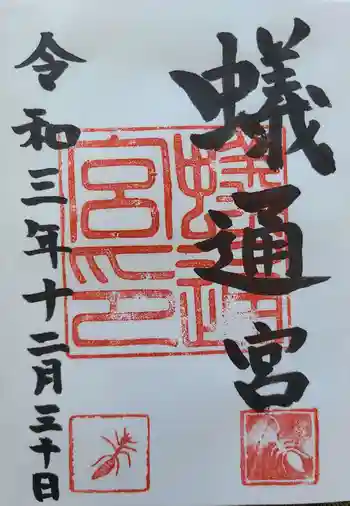 蟻通宮
令和三年十二月三十日
蟻通宮印